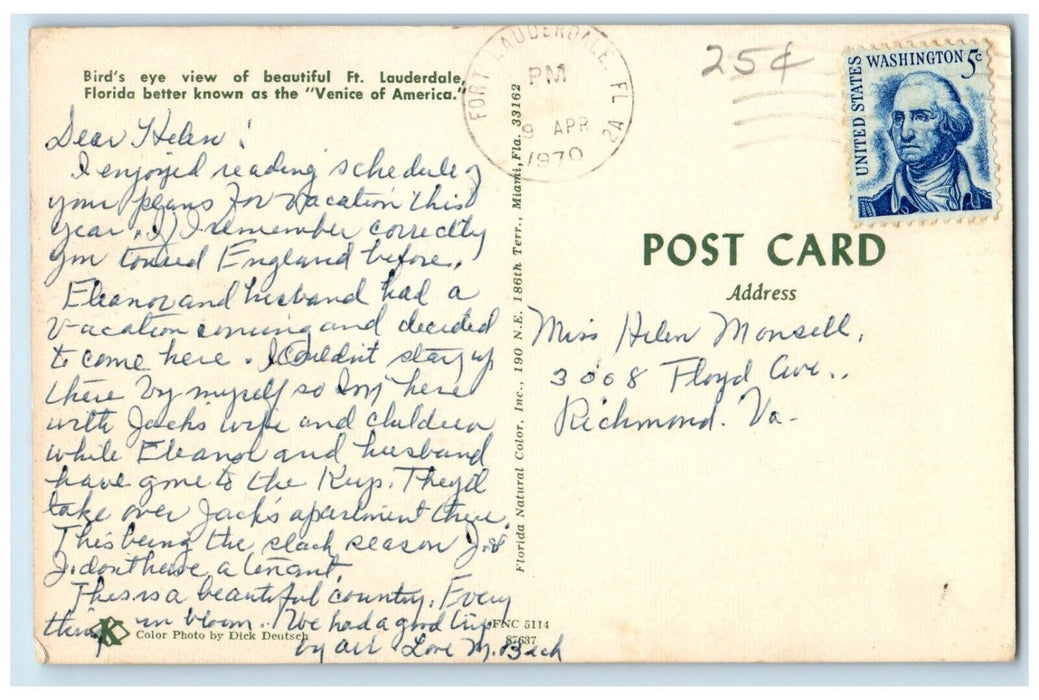 Bird's eye view of beautiful Ft. Lauderdale,
Florida better known as the "Venice of America."
Dear Helen!
I enjoyed reading schedule of
your plans for vacation this
year. If I remember correctly
you toured England before.
Eleanor and husband had a
vacation coming and decided
to come here. I Couldn't stay up
there by myself so I'm here
with Jack's wife and children
while Eleanor and husband
have gone to the Keys. They'd
take over Jack's apartment there.
This being the slack season J. &
J. don't have a tenant.
This is a beautiful country. Every
thing in bloom. We had a good trip
by air Love M. Bach
K
Color Photo by Dick Deutsch
FORT LAUDERDALE, FL
PM
9 APR
1970
2A
Florida Natural Color, Inc., 190 N.E. 186th Terr., Miami, Fla. 33162
FNC 5114
87637
25¢
UNITED STATES
WASHINGTON 5c
POST CARD
Address
Miss Helen Monsell,
3008 Floyd Ave..
Richmond. Va-